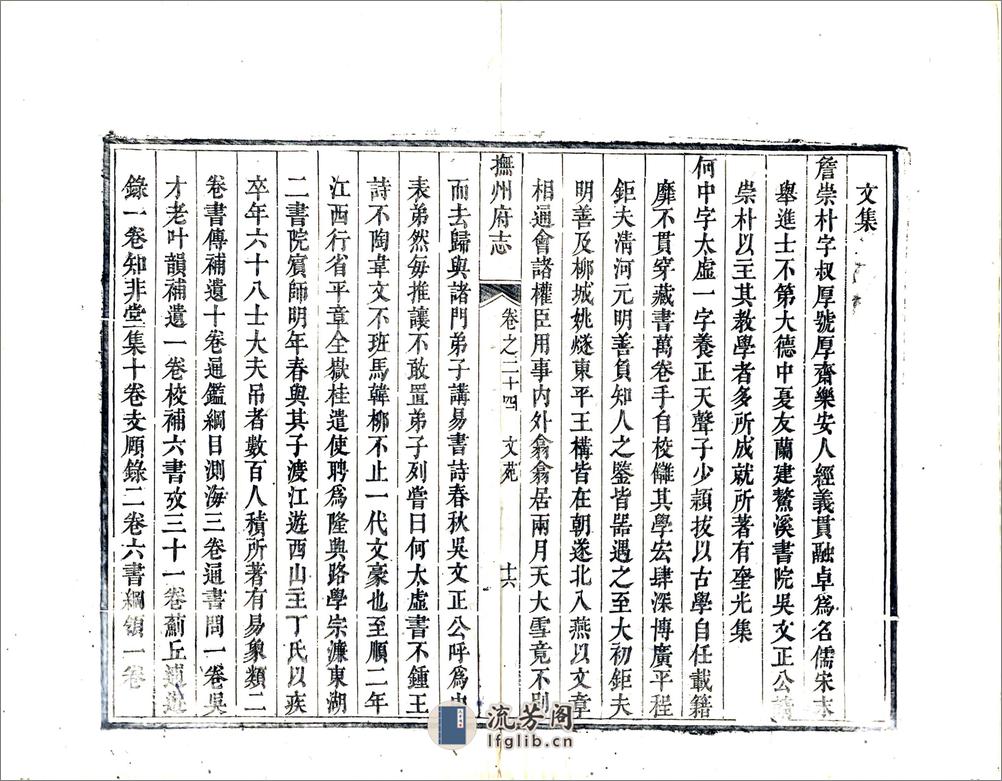 文集
詹崇朴字叔厚號厚齋樂安人經義貫融卓為名儒宋末
舉進士不第大德中夏友蘭建鰲溪書院吳文正公
崇朴以主其教學者多所成就所著有奎光集
何中字太虛一字養正天聲子少穎拔以古學自任載籍
靡不貫穿藏書萬卷手自校讎其學宏肆深博廣平程
鉅夫清河元明善負知人之鑒皆器遇之至大初鉅夫
明善及柳城姚燧東平王構皆在朝遂北入燕以文章
相通會諸權臣用事內外翕翕居兩月天大雪竟不別
撫州府志
卷之二十四 文苑 十六
而去歸與諸門弟子講易書詩春秋吳文正公呼為中
表弟然每推讓不敢置弟子列嘗曰何太虛書不鍾王
詩不陶韋文不班馬韓柳不止一代文豪也至順二年
江西行省平章全嶽桂遣使聘為隆興路學宗濂東湖
二書院賓師明年春與其子渡江遊西山主丁氏以疾
卒年六十八士大夫吊者數百人積所著有易象類二
卷書傳補遺十卷通鑑綱目測海三卷通書問一卷吳
才老叶韻補遺一卷校補六書攷三十一卷薊丘述遊
錄一卷知非堂集十卷支頤錄二卷六書綱領一卷
流芳阁
lfglib.cn